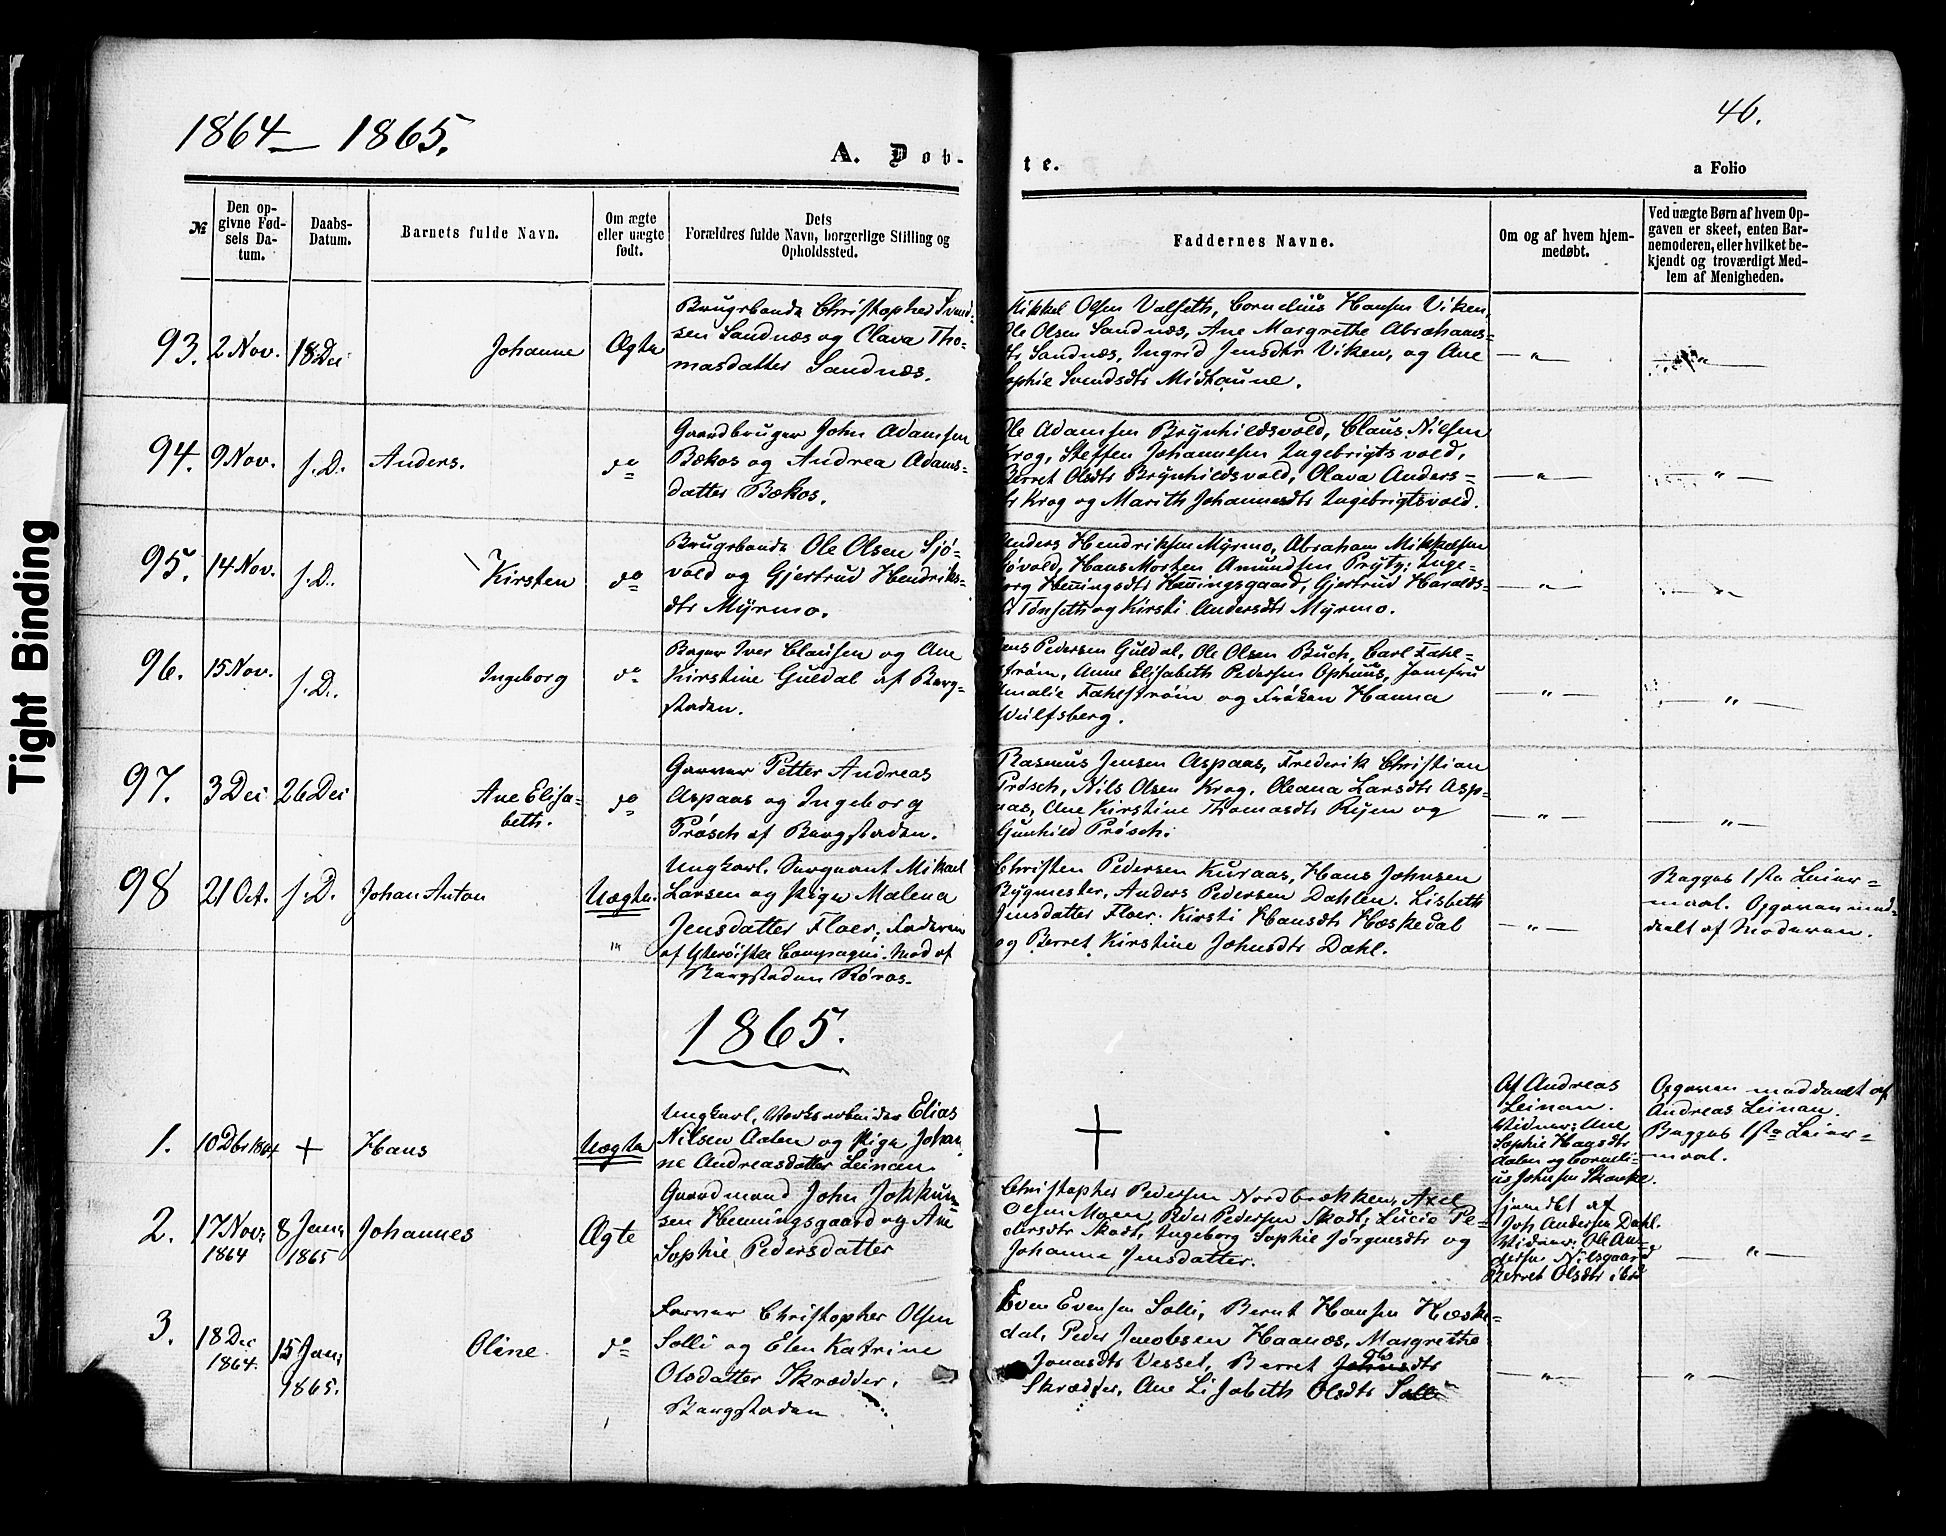 1864 — 1865.
46.
A. Dob-
te.
a Folio
№
Den op-
givne Fød-
sels Da-
tum.
Daabs-
Datum.
Barnets fulde Navn.
Om ægte
eller uægte
født.
Dets
Forældres fulde Navn, borgerlige Stilling og
Opholdssted.
Faddernes Navne.
Om og af hvem hjem-
medøbt.
Ved uægte Børn af hvem Op-
gaven er skeet, enten Bar-
nemoderen, eller hvilket be-
kjendt og troværdigt Med-
lem af Menigheden.
93. 2 Nov. 18 Dec Johanne Ægte
Brugsbonde Christopher Svend-
sen Sandnæs og Olava Tho-
masdatter Sandnæs.
Mikkel Olsen Valseth, Cornelius Hansen Viken,
Ole Olsen Sandnæs, Ane Margrethe Abrahams-
dtr Sandnæs, Ingrid Jensdtr Viken, og Ane
Sophie Svendsdtr Midtaune.
— " —
— " —
94. 9 Nov. s. D. Anders. do
Gaardbruger John Adamsen
Bækos og Andrea Adams-
datter Bækos.
Ole Adamsen Brynhildsvold, Claus Nilsen
Krog, Steffen Johannesen Ingebrigtsvold,
Berret Olsdtr Brynhildsvold, Olava Anders-
dtr Krog og Marith Johannesdtr Ingebrigtsvold.
— " —
"
95. 14 Nov. s. D. Kirsten do
Brugsbonde Ole Olsen Sjø-
vold og Gjertrud Hendriks-
dtr Myrmo.
Anders Hendriksen Myrmo, Abraham Mikkelsen
Sjøvold, Hans Morten Amundsen Prytz, Inge-
borg Henningsdtr Henningsgaard, Gjertrud Haralds-
dtr Tønseth og Kirsti Andersdtr Myrmo.
— " —
— " —
96. 15 Nov. s. D. Ingeborg do
Bager Iver Clausen og Ane
Kirstine Guldal af Berg-
staden.
Hans Pedersen Guldal, Ole Olsen Buch, Carl Fahl-
strøm, Anne Elisabeth Pedersen Ophuus, Jomfru
Amalie Fahlstrøm og Frøken Hanna
Wulfsberg.
— " —
— " —
97. 3 Dec 26 Dec Ane Elisa-
beth. do
Garver Petter Andreas
Aspaas og Ingeborg
Prøsch af Bergstaden.
Rasmus Jensen Aspaas, Frederik Christian
Prøsch, Nils Olsen Krog, Oleana Larsdtr Asp-
aas, Ane Kirstine Thomasdtr Ryen og
Gunhild Prøsch.
— " —
— " —
98 21 Oct. s. D. Johan Anton Uægte.
Ungkarl, Sergeant Mikael
Larsen og Pige Malena
Jensdatter Floer; Faderen
af Ytterøiske Compagni. Mod. af
Bergstaden Røros.
Christen Pedersen Kuraas, Hans Johnsen
Bygmester, Anders Pedersen Dahlen. Lisbeth
Jensdatter Floer. Kirsti Hansdtr Hæskedal
og Berret Kirstine Johnsdtr Dahl.
— " —
Begges 1ste Leier-
maal. Opgaven med-
deelt af Moderen.
1865.
1. 10 Dbr 1864 + Hans Uægte
Ungkarl, Værksarbeider Elias
Nilsen Aalen og Pige Johan-
ne Andreasdatter Leinan.
+
Af Andreas
Leinan.
Vidner: Ane
Sophie Haagsdtr
dalen og Corneli-
us Johnsen Skanke.
Opgaven meddeelt af
Andreas Leinan.
Begges 1ste Leier-
maal.
2. 17 Nov. 1864 8 Jan. 1865 Johannes Ægte
Gaardmand John Jokkum-
sen Henningsgaard og Ane
Sophie Pedersdatter
Christopher Pedersen Nordbrækken, Axel
Olsen Moen, Peder Pedersen Skott, Lucie Pe-
dersdtr Skott, Ingeborg Sophie Jørgensdtr og
Johanne Jensdatter.
hjemdbt af
Joh. Andersen Dahl.
Vidner: Ole An-
dersen Nilsgaard
Berret Olsdtr ibd
— " —
3. 18 Dec 1864. 15 Jan. 1865. Oline do
Farver Christopher Olsen
Solli og Elen Katrine
Olsdatter Skrædder,
Bergstaden
Even Evensen Solli, Bernt Hansen Hæske-
dal, Peder Jacobsen Haanæs, Margrethe
Jonasdtr Vesset, Berret
Skrædder, Ane Lisabeth Olsdtr Solli
— " —
— " —
Tight Binding